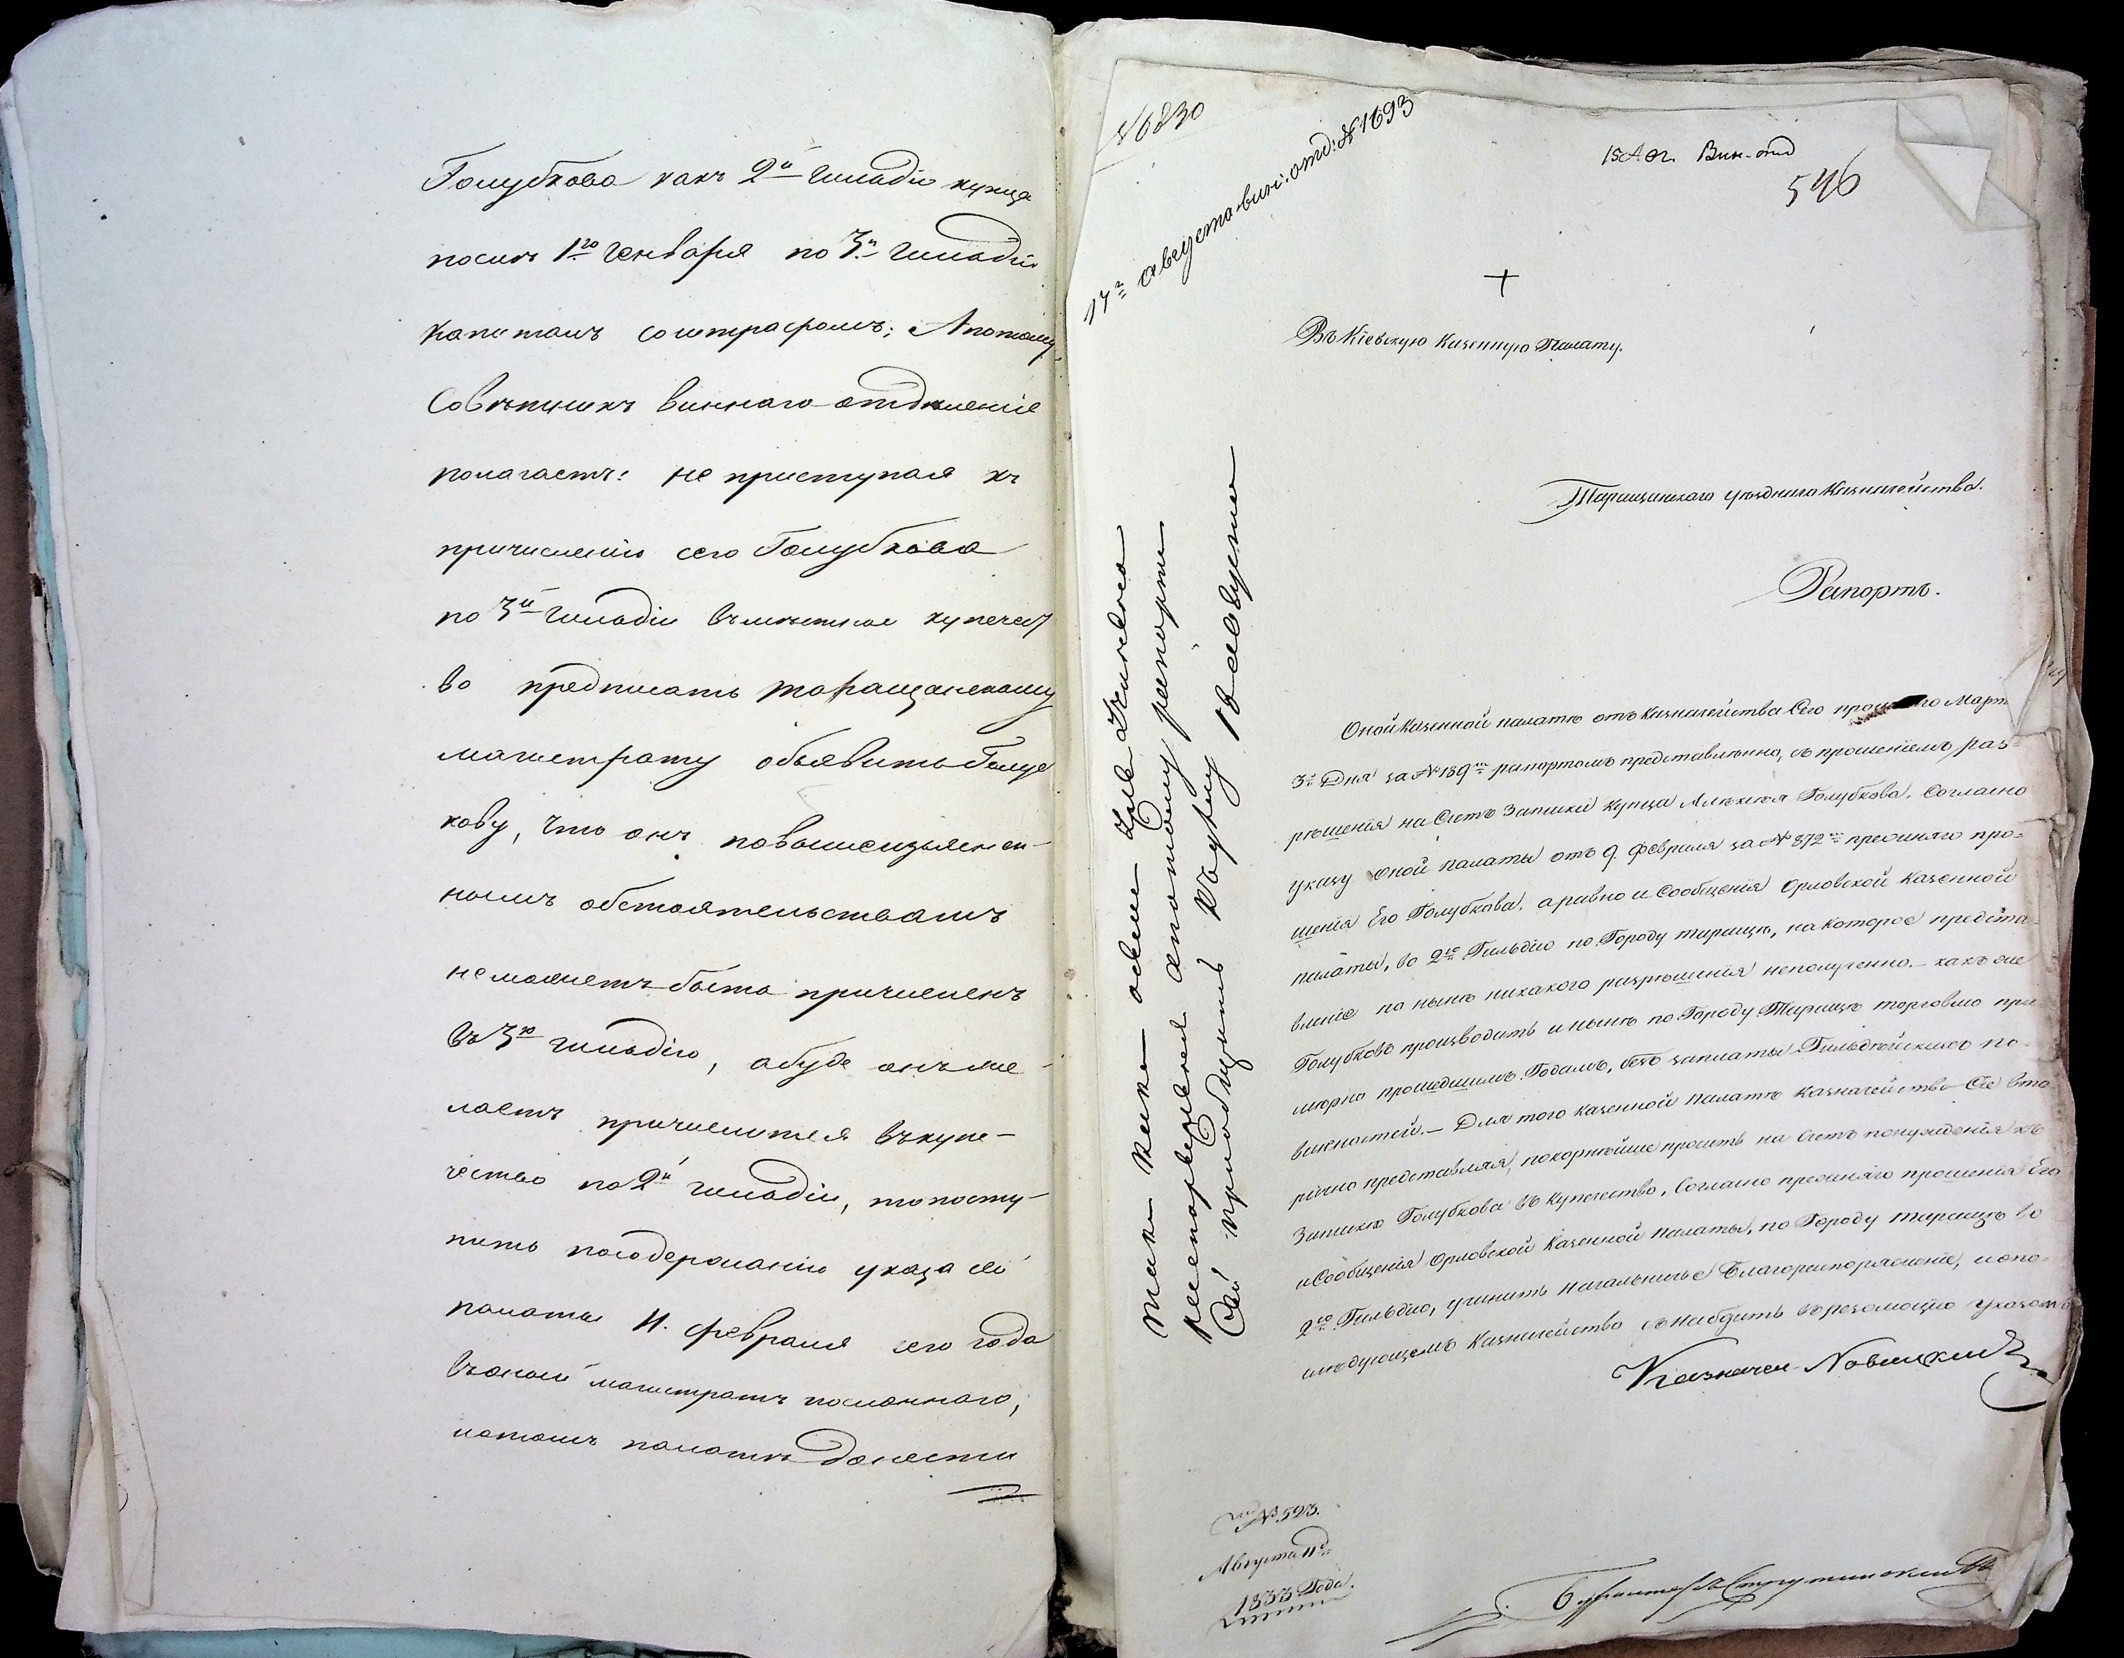 Голубкова какъ 2й гильдіи купца
послѣ 1го Генваря по 3й гильдіи
капиталъ со штрафомъ; А потому
Совѣтникъ виннаго отдѣленія
полагаетъ: не приступая къ
причисленію сего Голубкова
по 3й гильдіи въ мѣстное купечест
во предписать таращанскому
магистрату объявить Голуб
кову, что онъ по вышеизъяснен-
нымъ обстоятельствамъ
не можетъ быть причисленъ
въ 3ю гильдію, а буде онъ же-
лаетъ причислится въ купе-
чество по 2й гильдіи, то посту-
пить по содержанію указа сей
палаты 11. февраля сего года
въ оный магистратъ посланнаго,
и о томъ палатѣ донести
№ 6830
17го августа вин: отд: № 1693
15 Авг. Вин. отд
546
Въ Кіевскую Казенную Палату.
Таращанского уѣзднаго Казначейства.
Рапортъ.
Оной Казенной палатѣ отъ Казначейства Сего прошлаго Март
3го Дня за № 189мъ рапортомъ представленно, съ прошеніемъ, раз-
рѣшенія на Счетъ Записки Купца Алексѣя Голубкова, Согласно
указу оной палаты отъ 9 февраля за № 872мъ прежняго про-
шенія Его Голубкова, а равно и Сообщенія Орловской Казенной
палаты, во 2ю Гильдію по Городу таращѣ, на которое предста-
вленіе по нынѣ никакого разрѣшенія неполученно. – какъ же
Голубковъ производитъ и нынѣ по Городу Таращѣ торговлю при
мѣрно прошедшимъ Годамъ, безъ заплаты Гильдейскихъ по-
винностей. – Для того Казенной Палатѣ Казначейство Сіе вто
рично представляя, покорнѣйше проситъ на Счетъ понужденія къ
Запискѣ Голубкова въ Купечество, Согласно прежняго прошенія Его
и Сообщенія Орловской Казенной Палаты, по Городу таращѣ во
2ю Гильдію, учинить Начальничье Благораспоряженіе, и о по-
слѣдующемъ Казначейство снабдить въ резолюцію указомъ
Казначей Новицкий
№ 523.
Августа 11 д
1833 Года.
Бухгалтеръ Струтинский